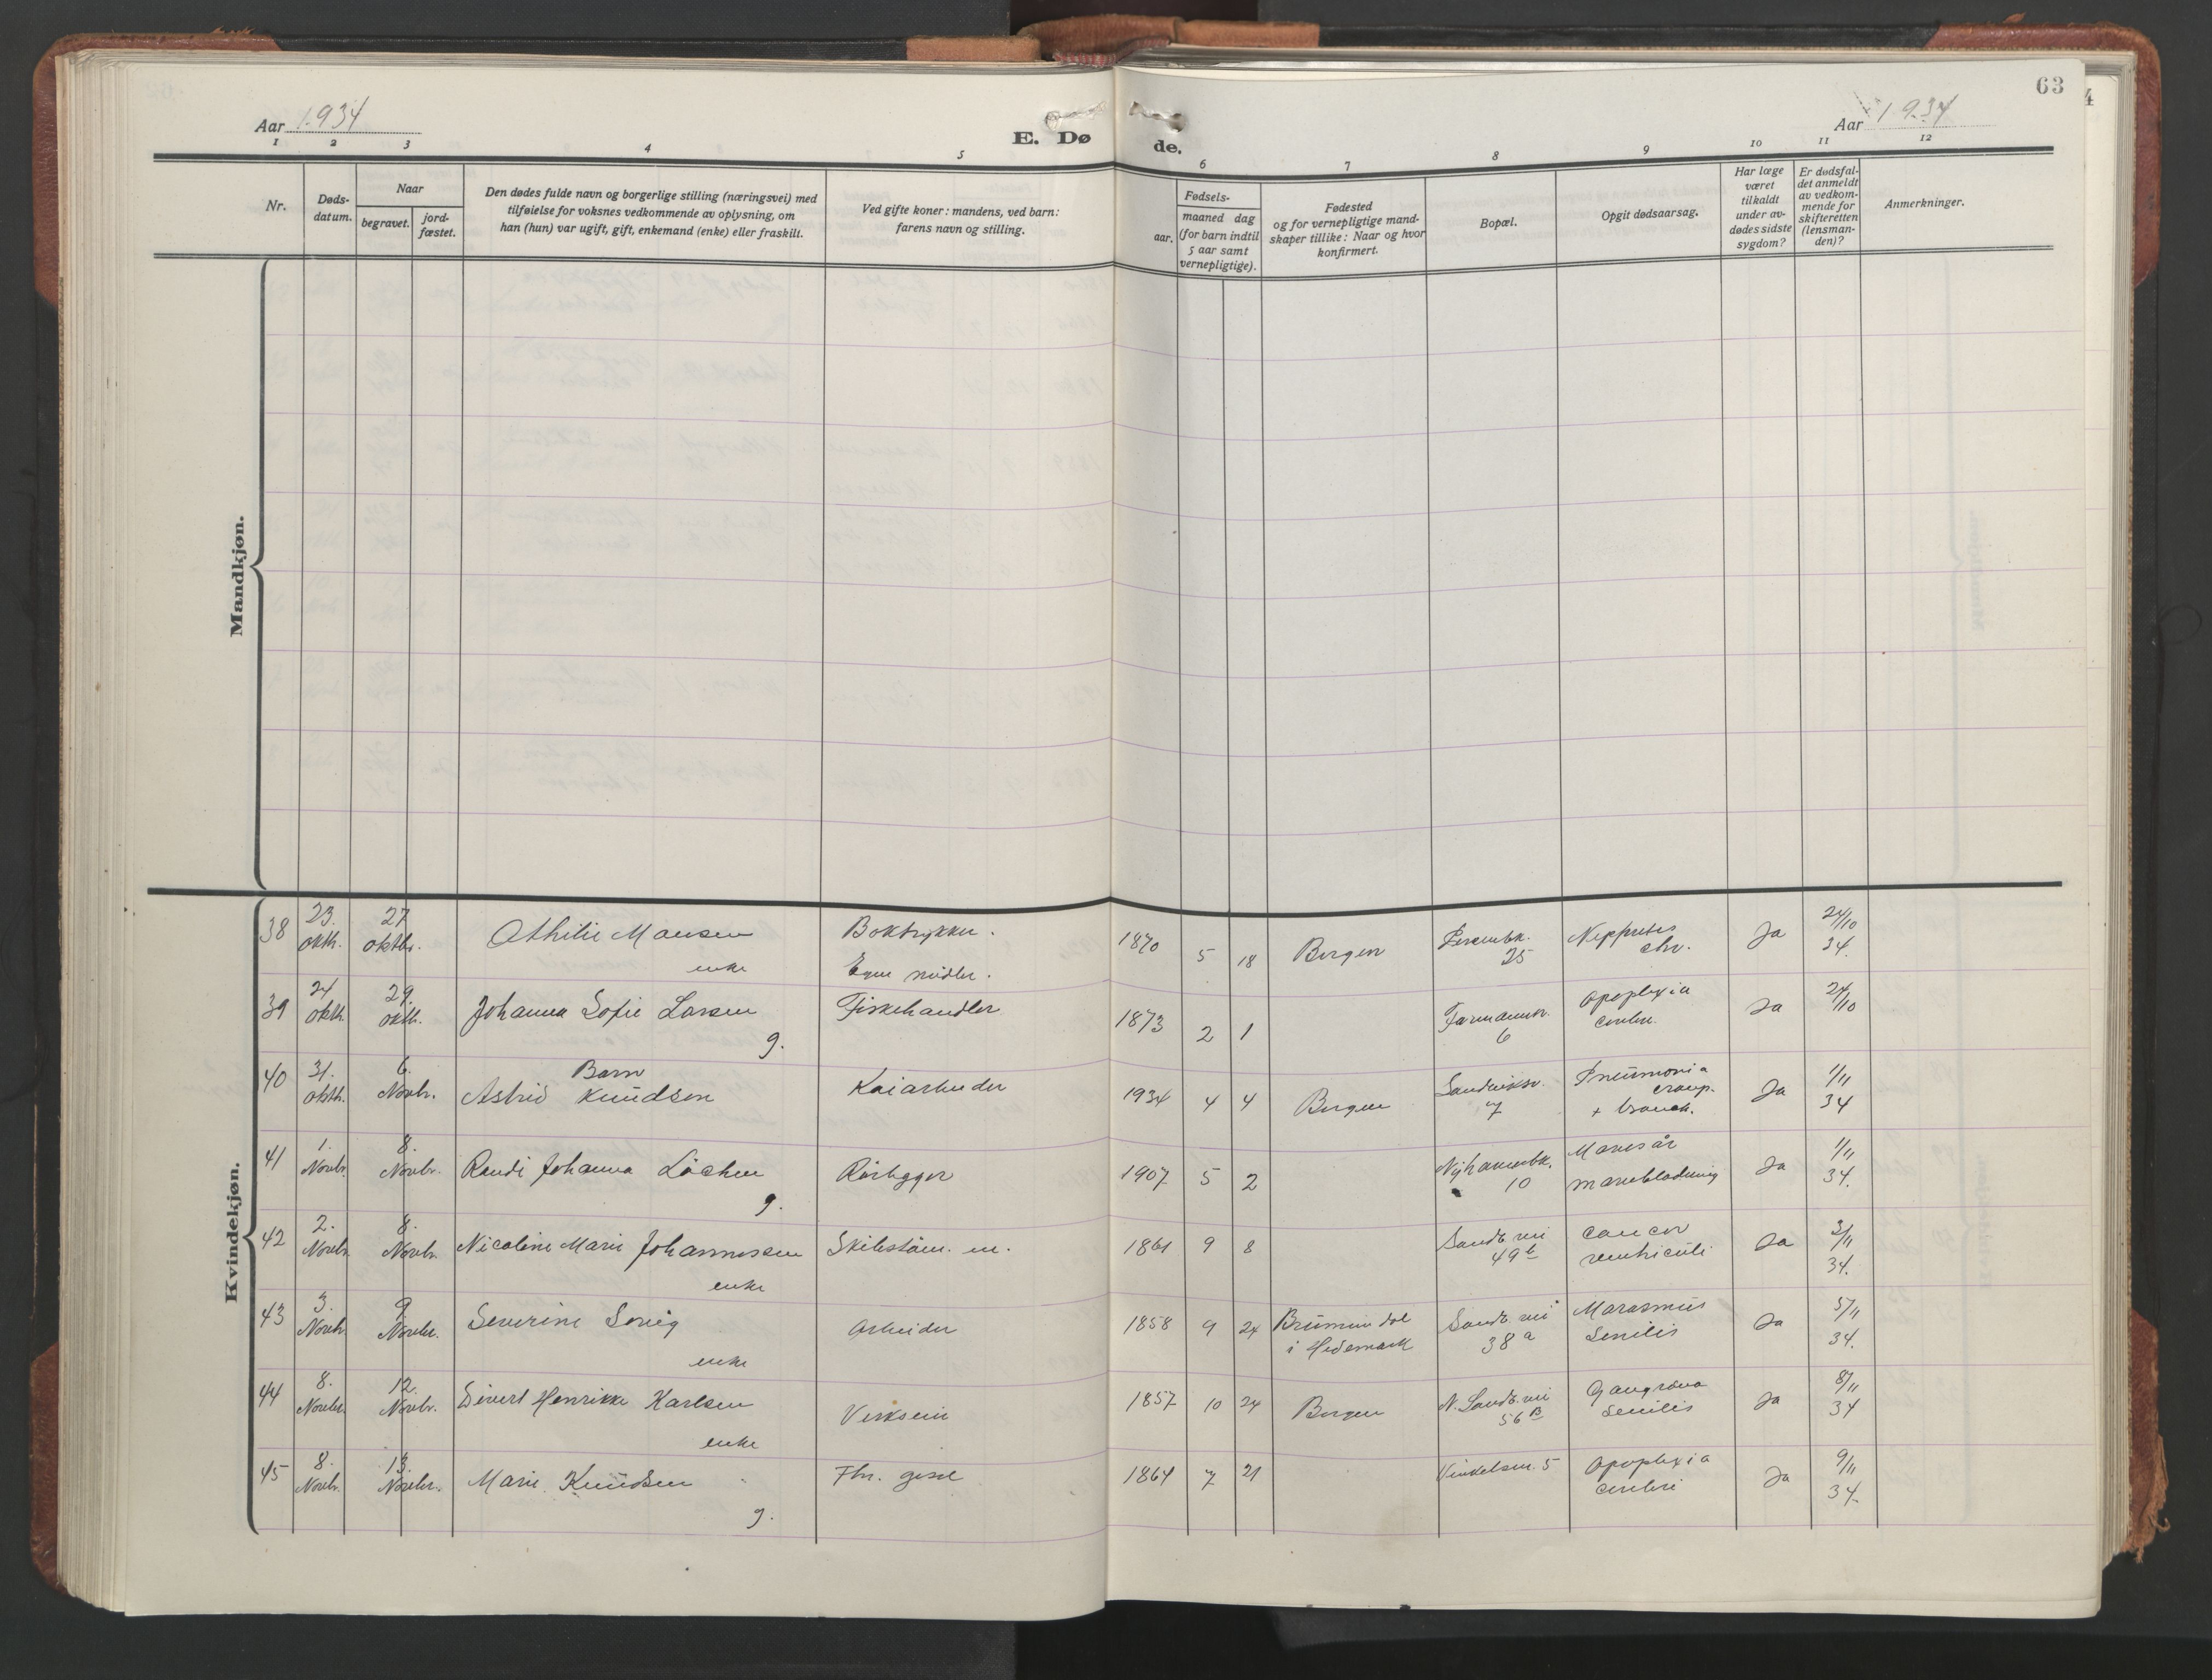 63
Aar 1934
E. Dø
de.
Aar 1934
1 2 3 4 5 6 7 8 9 10 11 12
Nr.
Døds-
datum.
Naar
begravet.
jord-
fæstet.
Den dødes fulde navn og borgerlige stilling (næringsvei) med
tilføielse for voksnes vedkommende av oplysning, om
han (hun) var ugift, gift, enkemand (enke) eller fraskilt.
Ved gifte koner: mandens, ved barn:
farens navn og stilling.
Fødsels-
aar.
maaned dag
(for barn indtil
5 aar samt
vernepligtige).
Fødested
og for vernepligtige mand-
skaper tillike: Naar og hvor
konfirmert.
Bopæl.
Opgit dødsaarsag.
Har læge
været
tilkaldt
under av-
dødes sidste
sygdom?
Er dødsfal-
det anmeldt
av vedkom-
mende for
skifteretten
(lensman-
den)?
Anmerkninger.
Mandkjøn.
Kvindekjøn.
38 23. oktb. 27 oktbr. Othilie Monsen enke
Boktrykker. Egne midler.
1870 5 18 Bergen 25 chr. Ja 24/10 34.
39 24 oktb. 29. oktb. Johanna Sofie Larsen g.
Fiskehandler
1873 2 1 6 Apoplexia cerebri Ja 24/10
40 31. oktb. 6. Novbr. Barn Astrid Knudsen
Kaiarbeider
1934 4 4 Bergen Sandviksv. 7 Pneumonia croup. + bronch. Ja 1/11 34
41 1. Novbr. 8. Novbr. Randi Johanna Løchen g.
Rørlegger
1907 5 2 10 Mavesår maveblødning Ja 1/11 34.
42 2. Novbr. 8. Novbr. Nicoline Marie Johannessen enke
1861 9 8 Sandv. vei 49 b cancer ventriculi Ja 3/11 34.
43 3. Novb. 9 Novbr. Severine enke
Arbeider
1858 9 24 Brumundal i Hedemark Sandv. vei 38 a Marasmus Senilis Ja 5/11 34.
44 8. Novbr. 12. Novbr. Sivert Henrikke Karlsen enke
1857 10 24 Bergen N. Sandv. vei 56 B Gangræna Senilis Ja 8/11 34
45 8. Novbr. 13. Novbr. Marie Knudsen g.
1864 7 21 5 Apoplexia cerebri Ja 9/11 34.